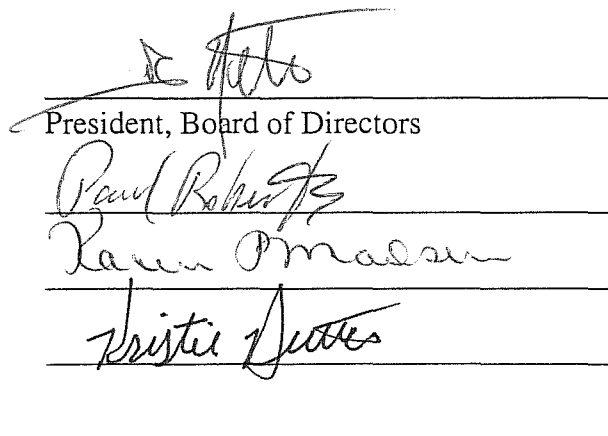 President, Board of Directors
Paul Roberts
Karen P Madsen
Kristie Dutton